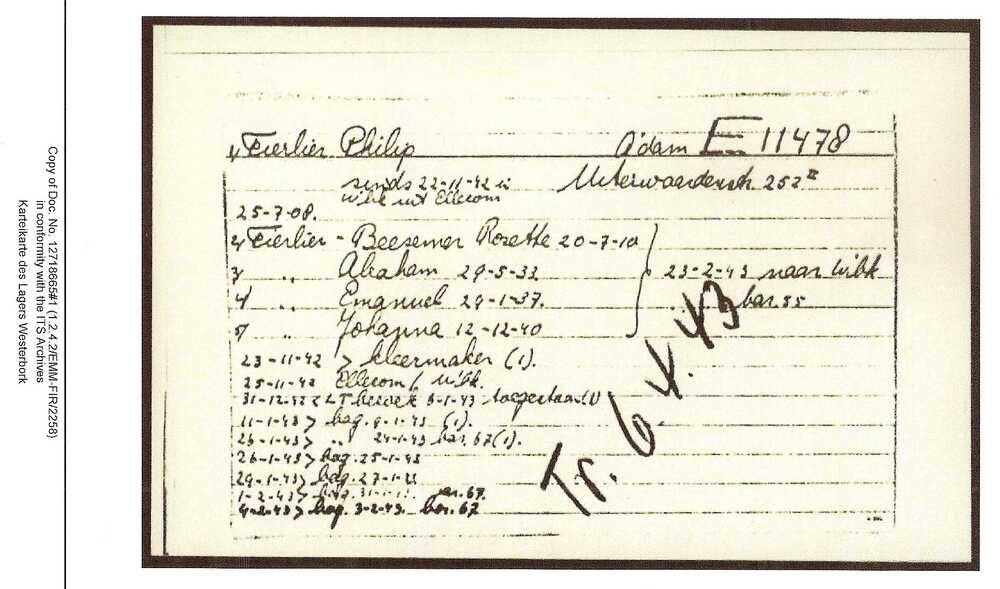 Copy of Doc. No. 12718665#1 (1.2.4.2/EMM-FIR/2258)
in conformity with the ITS Archives
Karteikarte des Lagers Westerbork
1/ Fierlier Philip A'dam E 11478
sinds 22-11-42 in Uiterwaardenstr. 252 II
wbk uit Ellecom
25-7-08.
2/ Fierlier - Beesemer Rosette 20-7-10
3/ " Abraham 29-5-33 23-2-43 naar Wbk
4/ " Emanuel 29-1-37. bar. 55
5/ " Johanna 12-12-40
23-11-42 > kleermaker (1).
25-11-42 Ellecom / wbk.
31-12-42 < LT 6-1-43 toegestaan (1)
11-1-43 > bag. 9-1-43 (1).
26-1-43 > " 24-1-43 bar. 67 (1).
26-1-43 > bag. 25-1-43
29-1-43 > bag. 27-1-43
1-2-43 > bag. 31-1-43. bar. 67.
4-2-43 > bag. 3-2-43. bar. 67
Tr. 6.4.43